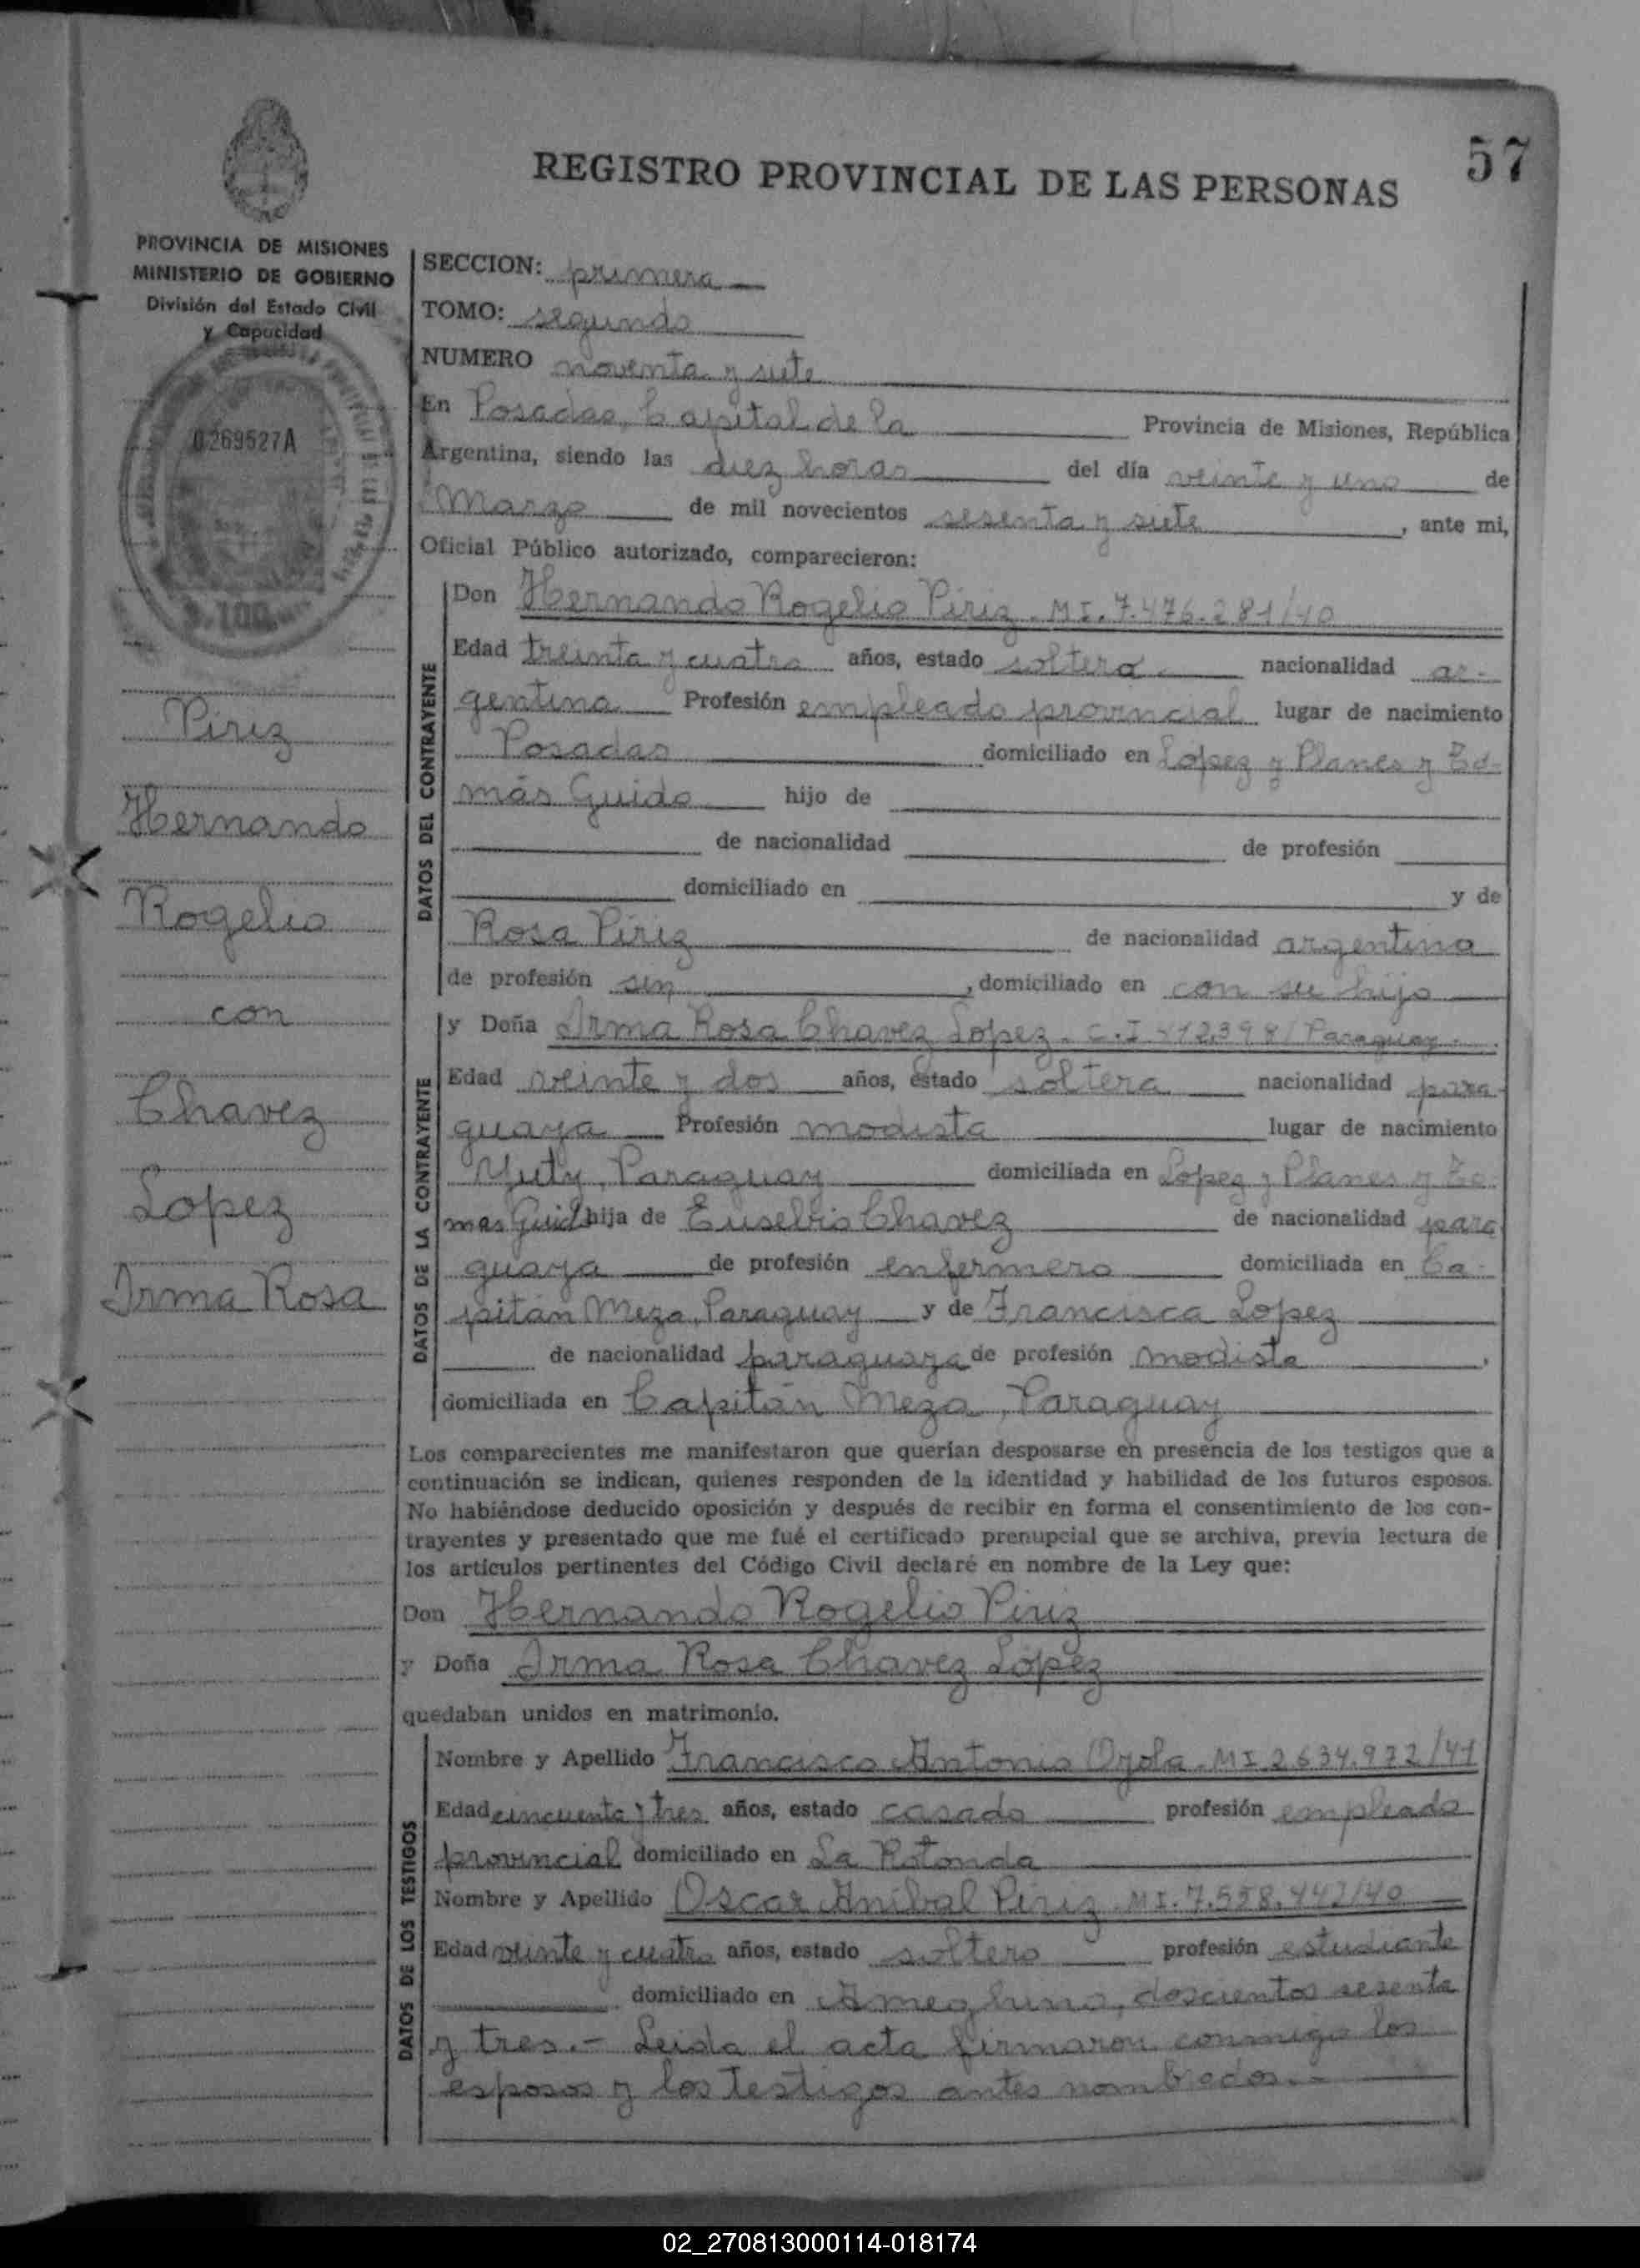 57
REGISTRO PROVINCIAL DE LAS PERSONAS
PROVINCIA DE MISIONES
MINISTERIO DE GOBIERNO
División del Estado Civil
y Capacidad
0269527A
$.100
Piriz
Hernando
Rogelio
con
Chavez
Lopez
Irma Rosa
SECCION: primera
TOMO: segundo
NUMERO noventa y siete
En Posadas, Capital de la Provincia de Misiones, República
Argentina, siendo las diez horas del día veinte y uno de
Marzo de mil novecientos sesenta y siete, ante mi,
Oficial Público autorizado, comparecieron:
DATOS DEL CONTRAYENTE
Don Hernando Rogelio Piriz. MI. 7.476.281/40
Edad treinta y cuatro años, estado soltero nacionalidad ar-
gentina Profesión empleado provincial lugar de nacimiento
Posadas domiciliado en López y Planes y To-
más Guido hijo de
de nacionalidad de profesión
domiciliado en y de
Rosa Piriz de nacionalidad argentina
de profesión sin, domiciliado en con su hijo
DATOS DE LA CONTRAYENTE
y Doña Irma Rosa Chavez Lopez. C.I. 412.394/Paraguay.
Edad veinte y dos años, estado soltera nacionalidad para-
guaya Profesión modista lugar de nacimiento
Yuty, Paraguay domiciliada en Lopez y Planes y To-
mas Guido hija de Eusebio Chavez de nacionalidad para
guaya de profesión enfermero domiciliada en Ca-
pitán Meza, Paraguay y de Francisca Lopez
de nacionalidad paraguaya de profesión modista,
domiciliada en Capitán Meza, Paraguay
Los comparecientes me manifestaron que querían desposarse en presencia de los testigos que a
continuación se indican, quienes responden de la identidad y habilidad de los futuros esposos.
No habiéndose deducido oposición y después de recibir en forma el consentimiento de los con-
trayentes y presentado que me fué el certificado prenupcial que se archiva, previa lectura de
los artículos pertinentes del Código Civil declaré en nombre de la Ley que:
Don Hernando Rogelio Piriz
y Doña Irma Rosa Chavez Lopez
quedaban unidos en matrimonio.
DATOS DE LOS TESTIGOS
Nombre y Apellido Francisco Antonio Oyola. MI. 2.634.972/41
Edad cincuenta y tres años, estado casado profesión empleado
provincial domiciliado en La Rotonda
Nombre y Apellido Oscar Anibal Piriz. MI. 7.558.442/40
Edad veinte y cuatro años, estado soltero profesión estudiante
domiciliado en Ameghino, doscientos sesenta
y tres.- Leida el acta firmaron conmigo los
esposos y los testigos antes nombrados.-
02_270813000114-018174